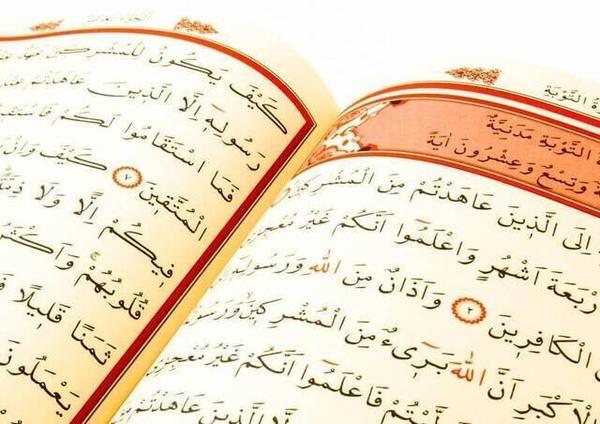 التَّوْبَةِ
التَّوْبَةِ مَدَنِيَّةٌ
وَتِسْعٌ وَعِشْرُونَ اٰيَةً
اِلَى الَّذِينَ عَاهَدْتُمْ مِنَ الْمُشْرِكِ
رْبَعَةَ اَشْهُرٍ وَاعْلَمُوا اَنَّكُمْ غَيْرُ مُعْجِزِ
الْكَافِرِينَ ٢ وَاَذَانٌ مِنَ اللّٰهِ وَرَسُولِهِ
لْاَكْبَرِ اَنَّ اللّٰهَ بَرِىءٌ مِنَ الْمُشْرِكِينَ وَرَسُولُهُ
لَّيْتُمْ فَاعْلَمُوا اَنَّكُمْ غَيْرُ مُعْجِزِ
لَّا الَّذِينَ عَاهَدْتُمْ
كَيْفَ يَكُونُ لِلْمُشْرِكِينَ عَهْدٌ
رَسُولِهِ اِلَّا الَّذِينَ عَاهَدْتُمْ
فَمَا اسْتَقَامُوا لَكُمْ فَاسْتَقِ
الْمُتَّقِينَ ٧ كَيْفَ وَاِنْ
فِيكُمْ اِلًّا وَلَا ذِمَّةً
قُلُوبُهُمْ وَاَكْثَرُ
ثَمَنًا قَلِيلًا فَ
يَعْمَلُونَ